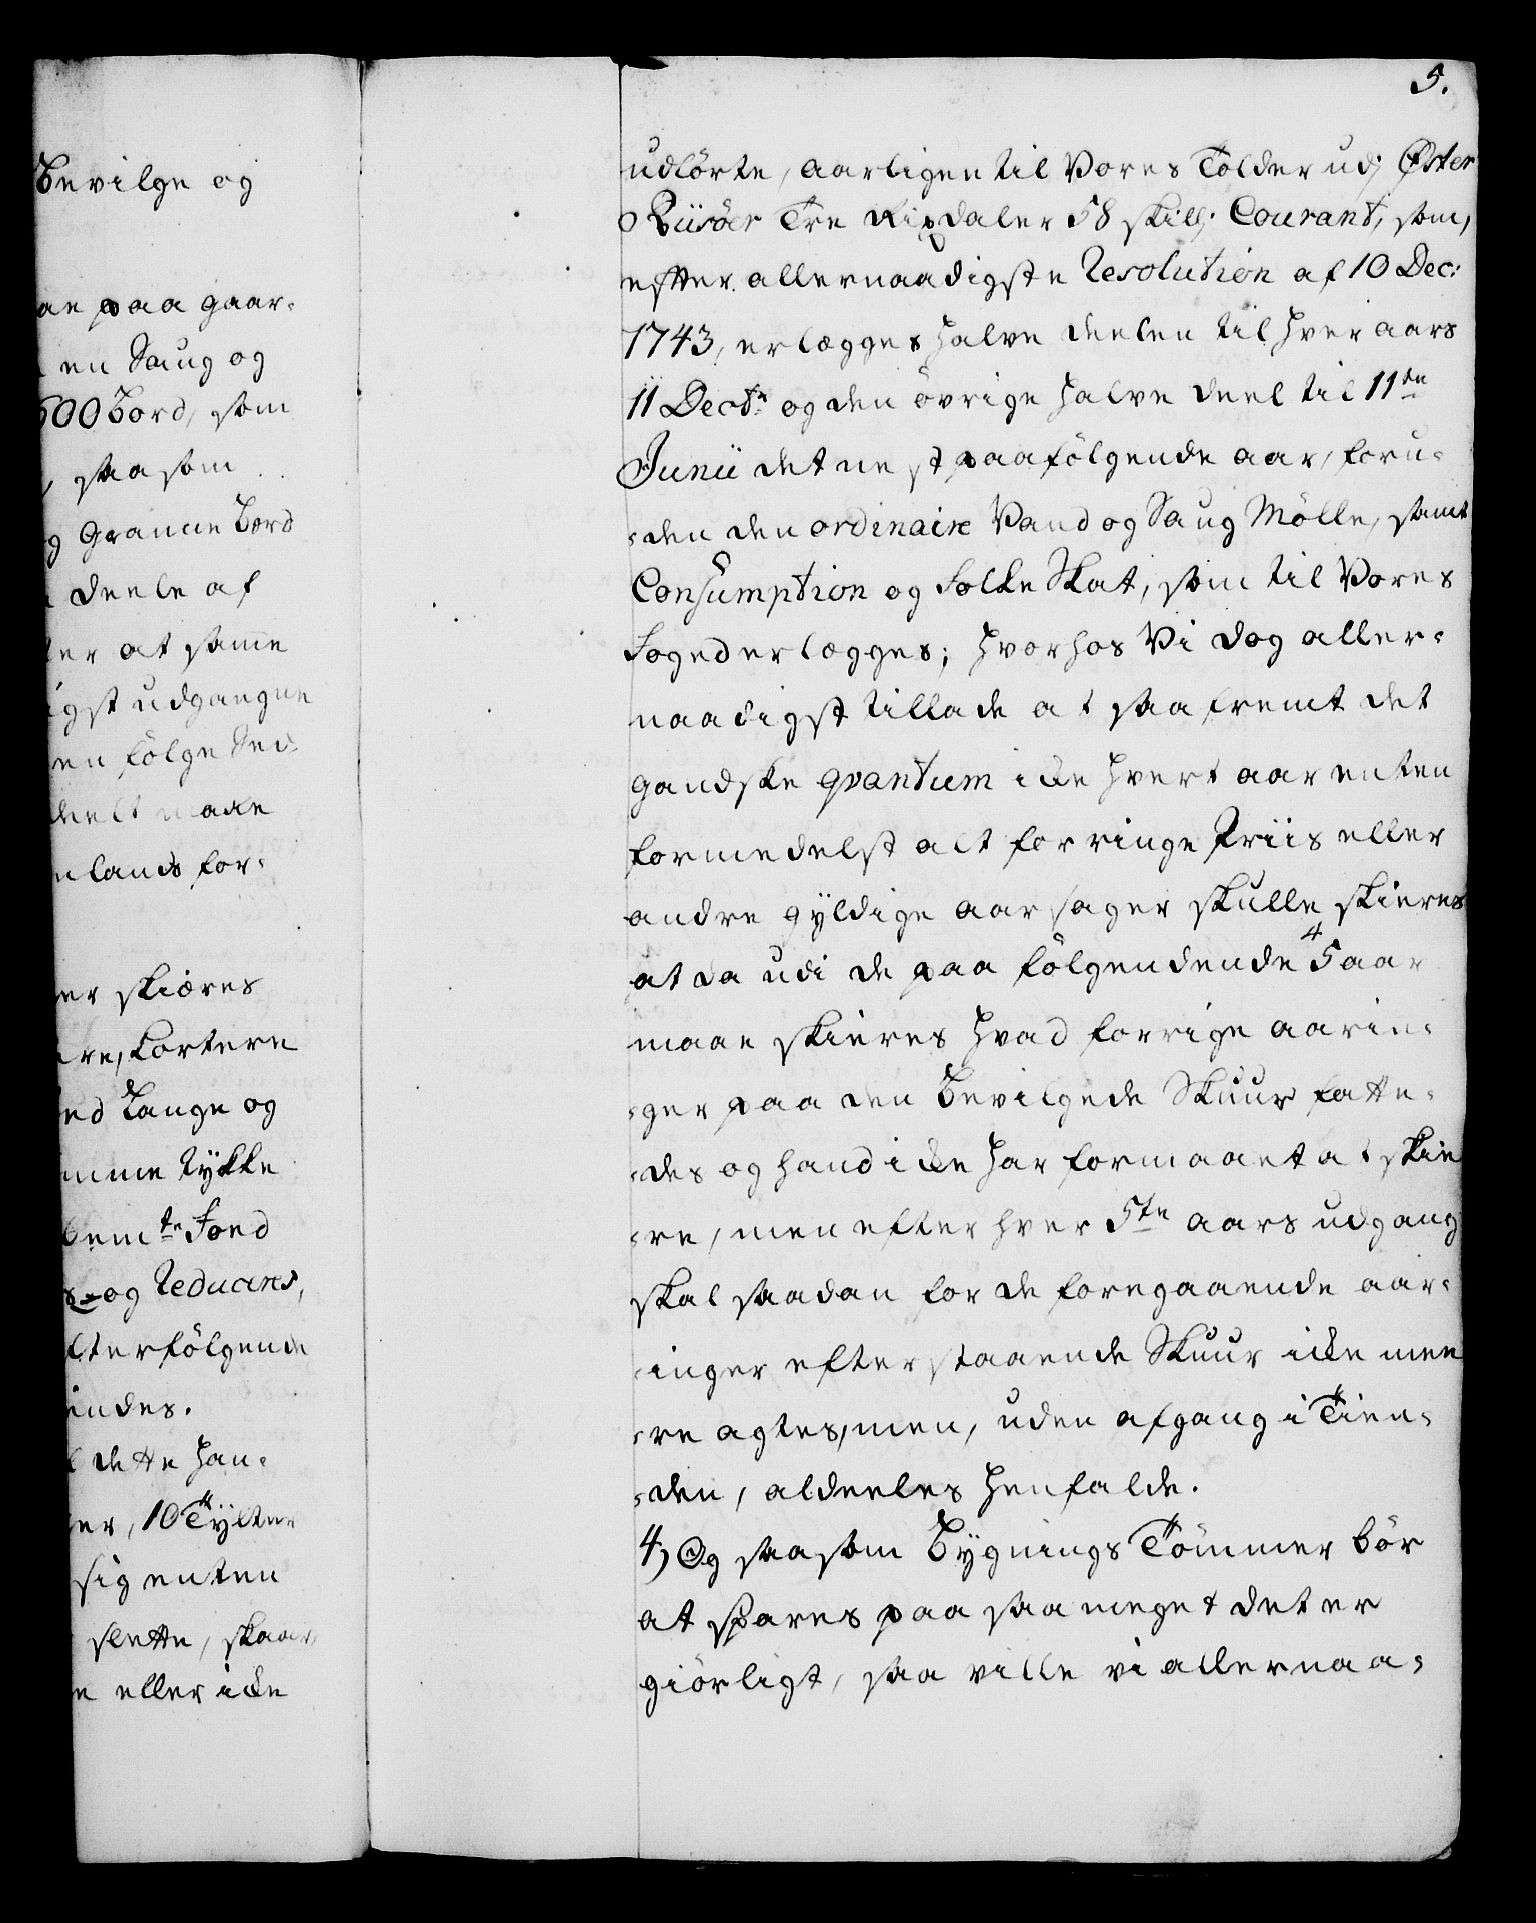 Bevilge og
ne paa gaar-
en Saug og
600 Bord, som
, saasom
g Granne Bord
deele af
ler at samme
igst udgangne
en følge Sed-
deelt maae
nlands for-
er skiæres
re, kortere
ed Lange og
mme tykke
bem.te Fond
og Reduceres,
fterfølgende
indes.
l dette Han-
er, 10 Tylter
sig enten
slette, skaar-
e eller icke
5.
udførte, aarligen til Vores Tolder udj Øster
Riisöer Tre Rixdaler 58 skill: Courant, som,
efter allernaadigste Resolution af 10 Dec:
1743, erlægges halve deelen til hver aars
11 Decbr. og den øvrige halve deel til 11te
Junii det nest paafølgende aar, foru-
-den den ordinaire Vand og Saug Mølle, samt
Consumption og Folke Skat, som til Vores
Foged erlægges; hvorhos Vi dog aller-
naadigst tillade at saafremt det
gandske qvantum icke hvert aar enten
formedelst alt for ringe Priis eller
andre gyldige aarsager skulle skieres
at da udi de paa følgendende 4 5 aar
maae skieres hvad forrige aarin-
-ger paa den Bevilgede Skuur fatte-
-des og hand icke har formaaet at skie
-re, men efter hver 5te aars udgang
skal saadan for de foregaaende aar-
-inger efterstaaende Skuur icke mee
-re agtes, men, uden afgang i Tien-
-den, aldeeles henfalde.
4) Og saasom Bygnings Tømmer bør
at spares paa saa meget det er
giørligt, saa ville vi allernaa-